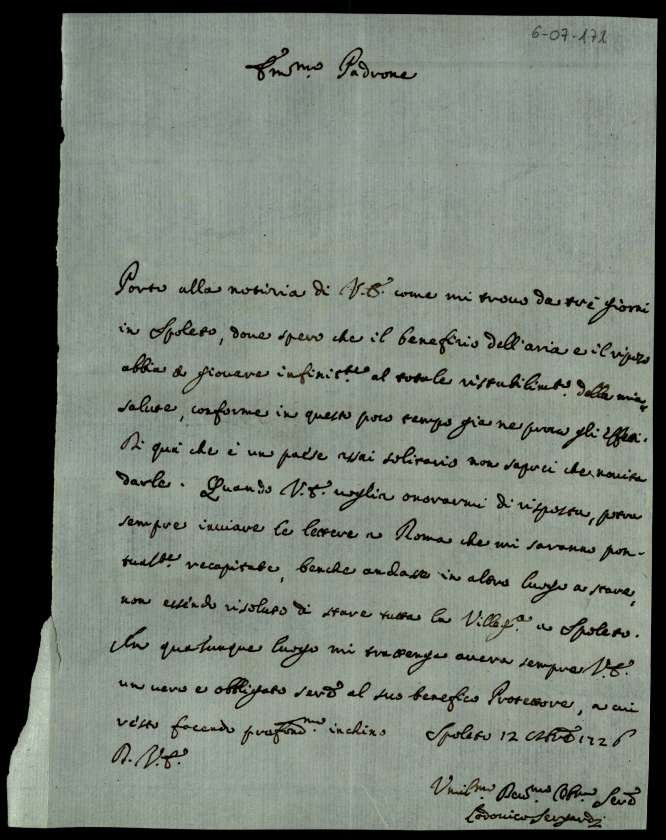 6-07-171
Em.mo Padrone
Porto alla notizia di V.E. come mi trovo da trè giorni
in Spoleto, dove spero che il benefizio dell'aria e il riposo
abbia à giovare infinit.te al totale ristabilim.to della mia
salute, conforme in questo poco tempo gia ne provo gli effetti.
Di qui che è un paese assai solitario non saprei che novità
darle. Quando V.E. voglia onorarmi di risposta, potrà
sempre inviare le lettere a Roma che mi saranno pon-
tualt.te recapitate, benche andassi in altro luogo a stare,
non essendo risoluto di stare tutta la Villeg.a a Spoleto.
In qualunque luogo mi trattenga averà sempre V.E.
un vero e obbligato ser.e al suo benefico Protettore, a cui
resto facendo profond.mo inchino Spoleto 12 8bre 1726
D. V.E.
Umil.mo Dev.mo Obl.mo Ser.e
Lodovico Sergardi